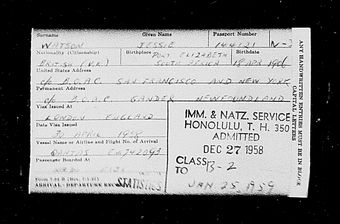 Surname Given Name Passport Number
WATSON JESSIE 144121
Nationality (Citizenship) Birthplace PORT ELIZABETH
BRITISH (U.K.) SOUTH AFRICA 19 APR
United States Address
c/o B.O.A.C. SAN FRANCISCO AND NEW YORK
Permanent Address
c/o B.O.A.C. GANDER NEWFOUNDLAND
Visa Issued at
LONDON ENGLAND
Date Visa Issued
30 APRIL 1958
Name of Vessel or Airline and Flight No. of Arrival
QANTAS
Passenger Boarded at
ARRIVAL-DEPARTURE RECORD
STATISTICS
IMM. & NATZ. SERVICE
HONOLULU, T. H. 350
ADMITTED
DEC 27 1958
CLASS B-2
TO JAN 25, 1959
ANY HANDWRITTEN ENTRIES MUST BE IN BLOCK
CAPITAL LETTERS